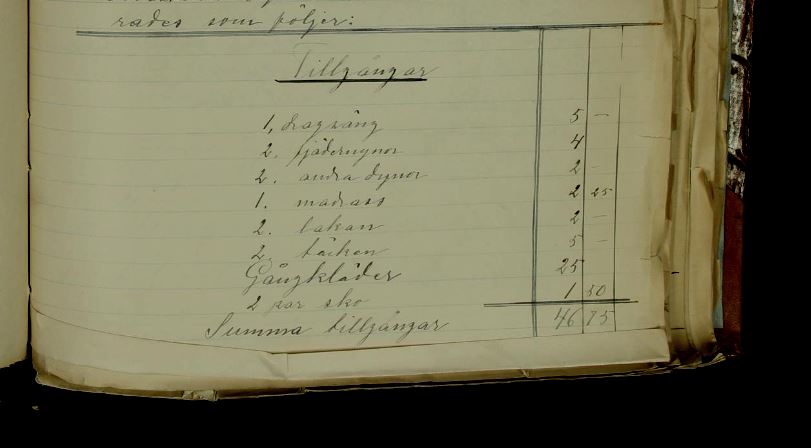 rades som följer:
Tillgångar
1, dragsäng 5 –
2. fjäderdynor 4
2. andra dynor 2 –
1. madrass 2 25
2. lakan 2 –
2. täcken 5 –
Gångkläder 25
2 par sko 1 50
Summa tillgångar 46 75